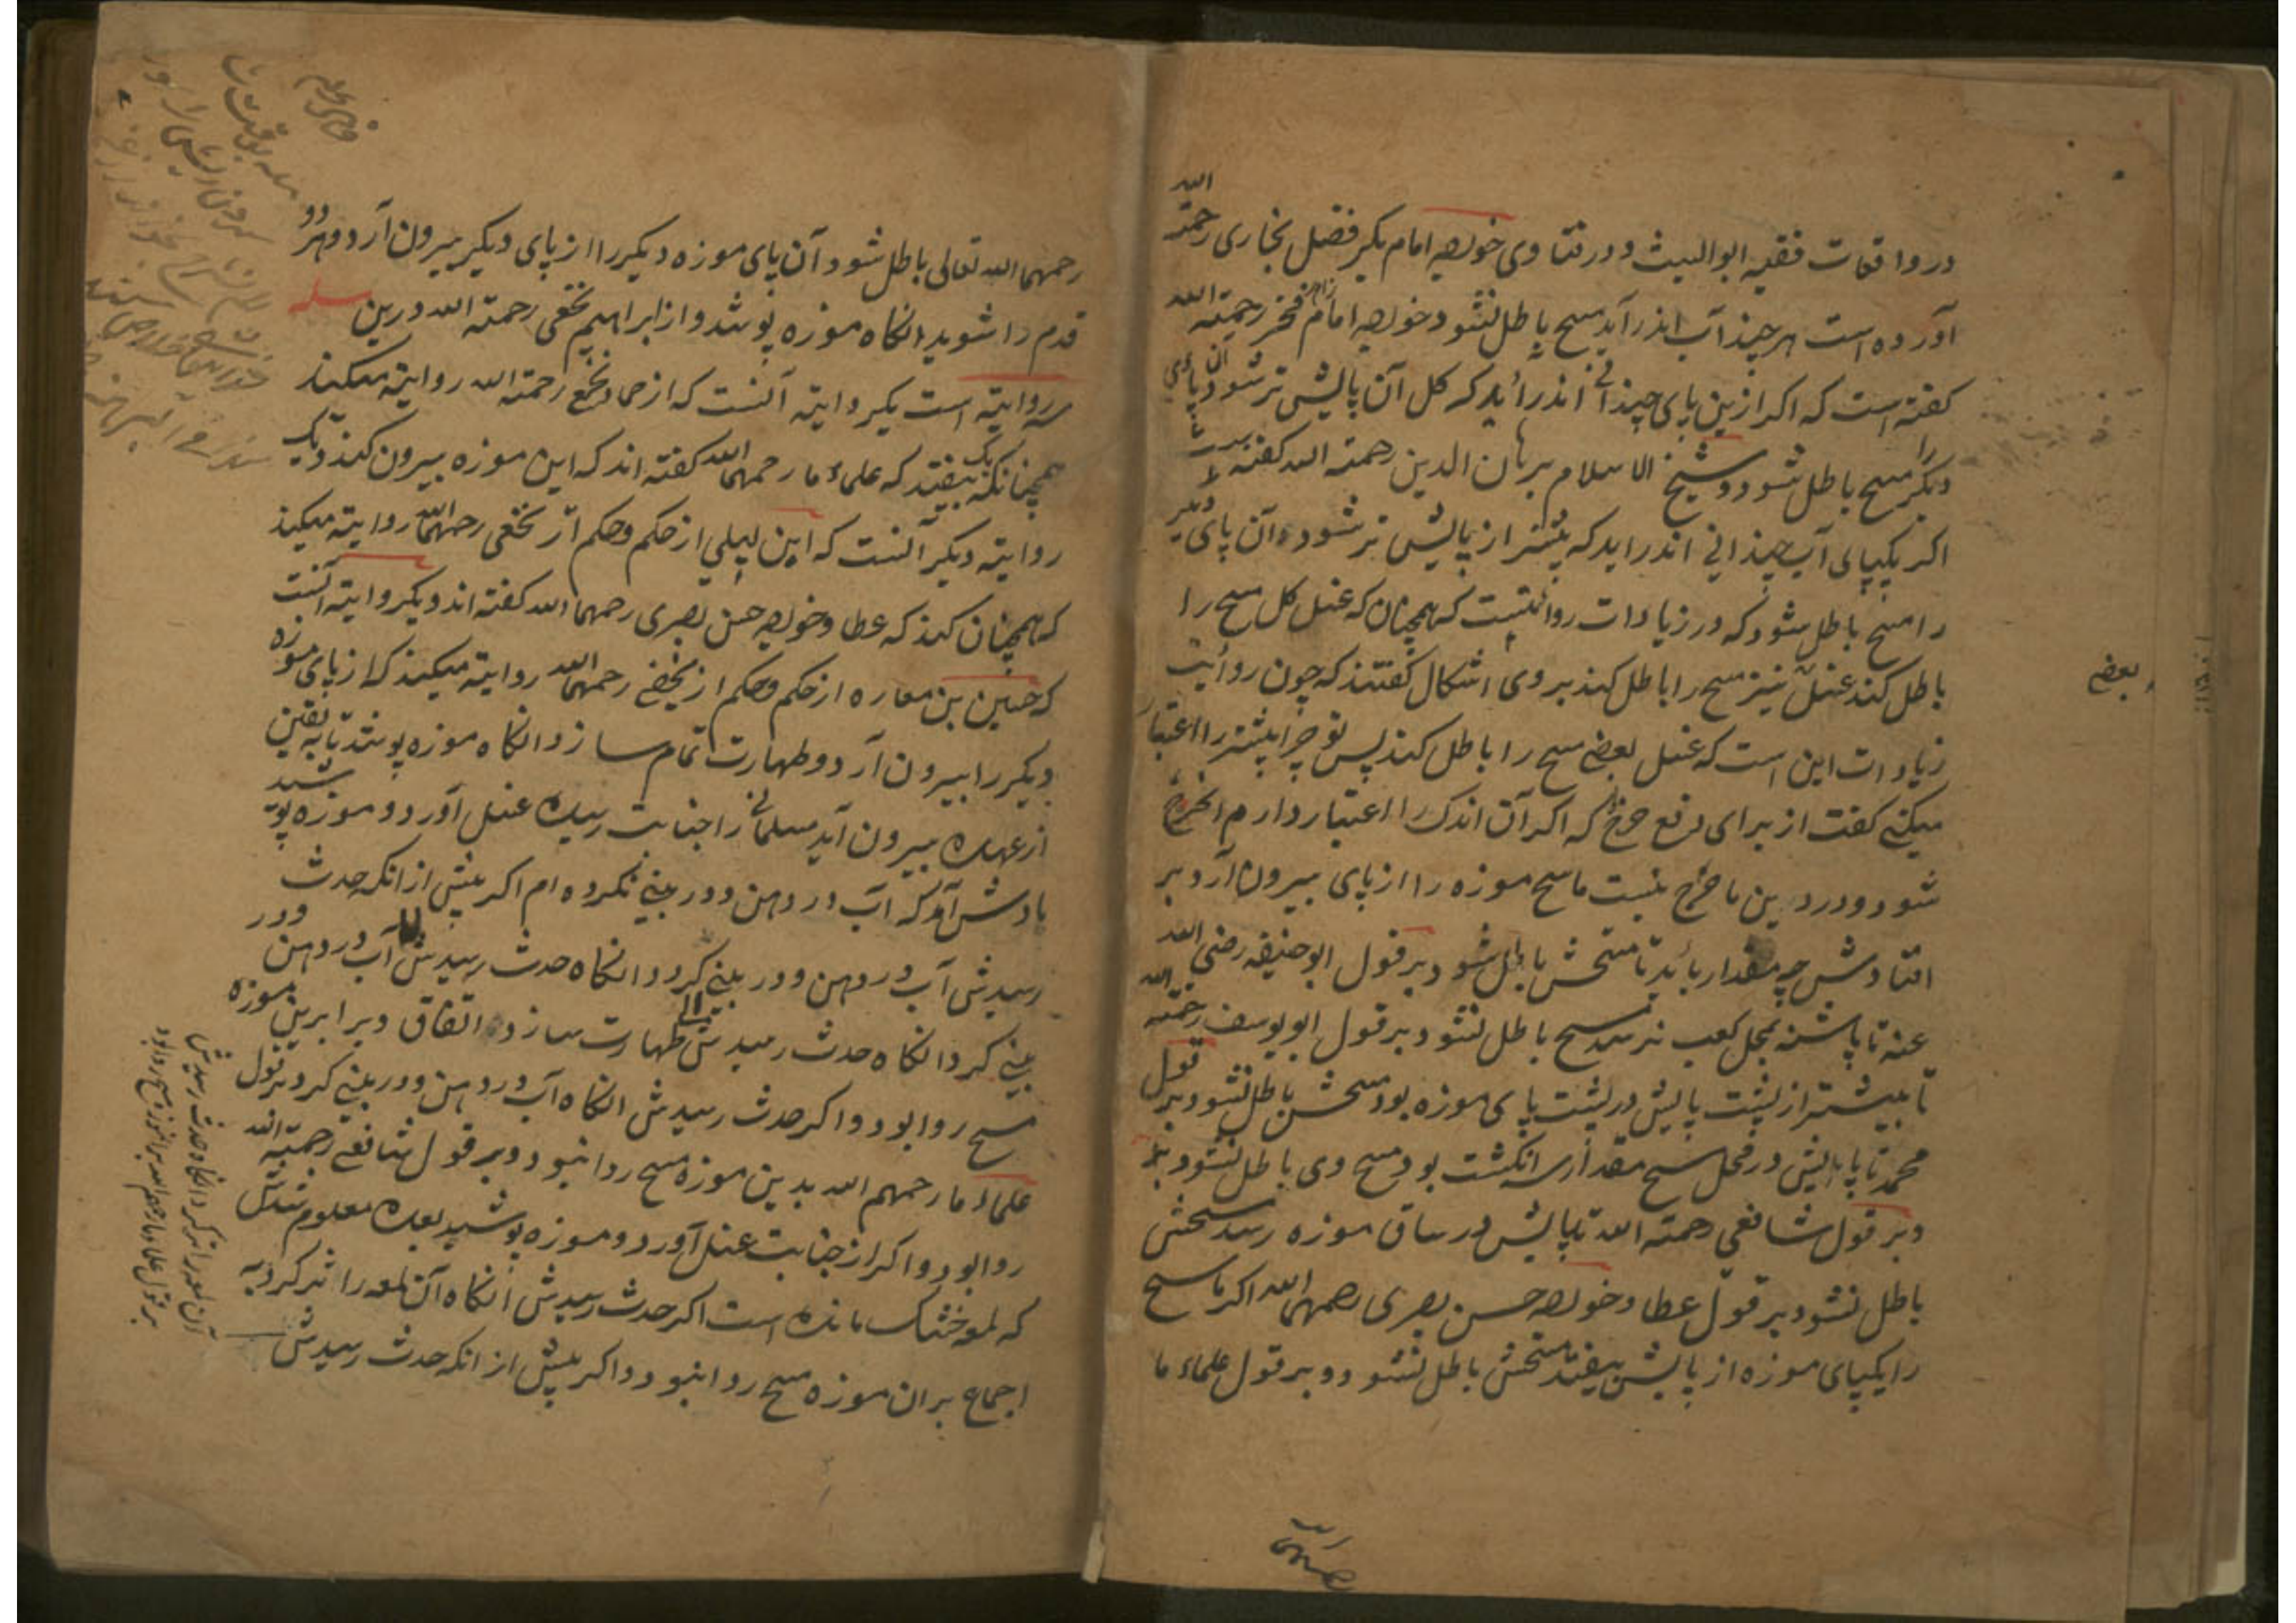 در واقعات فقیه ابو اللیث و در فتاوی خواجه امام بکر فضل بخاری رحمة الله
آورده است هر چند آب اندر آید مسح باطل نشود و خواجه امام زاهد فخر رحمة الله
گفته است که اگر ازین پای چندانی اندر آید که کل آن پایش تر شود آن پای
دیگر را مسح باطل شود و شیخ الاسلام برهان الدین رحمة الله گفته است
اگر یکپای آب چندانی اندر اید که بیشتر از پایش تر شود آن پای دیگر
را مسح باطل شود که در زیادات روایتست که همچنان که غسل کل مسح را
باطل کند غسل نیز مسح را باطل کند بر وی اشکال گفتند که چون روایت
بعضی
زیادات این است که غسل بعضی مسح را باطل کند پس تو چرا بیشتر را اعتبار
میکنی گفت از برای دفع حرج که اگر آن اندک را اعتبار دارم
شود و درین ما حرج نیست ماسح موزه را از پای بیرون آرد بر
افتادش چه مقدار باید تا مسحش باطل شود بر قول ابو حنیفه رضی الله
عنه تا پاشنه بمحل کعب نرسد مسح باطل نشود و بر قول ابو یوسف رحمة الله
تا بیشتر از پشت پایش در پشت پای موزه بود مسحش باطل نشود و بر قول
محمد تا پایش در محل مسح مقدار سه انگشت بود مسح وی باطل نشود
و بر قول شافعی رحمة الله تا پایش در ساق موزه رسد مسحش
باطل نشود بر قول عطا و خواجه حسن بصری رحمهما الله اگر ماسح
را یکپای موزه از پایش بیفتد مسحش باطل نشود و بر قول علماء ما
رحمهما الله تعالی باطل شود آن پای موزه دیگر را از پای دیگر بیرون آرد و هر دو
قدم را شوید انگاه موزه پوشد و از ابراهیم نخعی رحمة الله درین مسله
سه روایته است یک روایته آنست که از حماد نخع رحمة الله روایته میکند
همچنانکه بیفتد که علماء ما رحمهم الله گفته اند که این موزه بیرون کند و یک
روایته دیگر آنست که ابن لیلی از حکم و حکم از نخعی رحمهما الله روایته میکند
که همچنان کند که عطا و خواجه حسن بصری رحمهما الله گفته اند و یک روایته آنست
که حسن بن عماره از حکم و حکم از نخعی رحمهما الله روایته میکند که از پای موزه
دیگر را بیرون آرد و طهارت تمام سازد و انگاه موزه پوشد تا به یقین
از عهده بیرون آید مسلمانی را جنابت رسیده غسل آورد و موزه پوشید
یادش آمد که آب در دهن و در بینی نکرده ام اگر پیش از انکه حدث
رسیدش آب در دهن و در بینی کرد و انگاه حدث رسیدش آب در دهن و در
بینی کرد انگاه حدث رسیدش طهارت سازد اتفاق و برابرین موزه
مسح روا بود و اگر حدث رسیدش انگاه آب در دهن و در بینی کرد بر قول
علماء ما رحمهم الله بدین موزه مسح روا نبود و بر قول شافعی رحمة الله
روا بود و اگر از جنابت غسل آورد و موزه پوشید بعده معلوم شدش
که لمعه خشک مانده است اگر حدث رسیدش انگاه آن لمعه را تر کرد به
اجماع بران موزه مسح روا نبود و اگر پیش از انکه حدث رسیدش
آن لمعه را تر کرد انگاه حدث رسیدش
بر قول علماء ما رحمهم الله بر موزه مسح روا بود